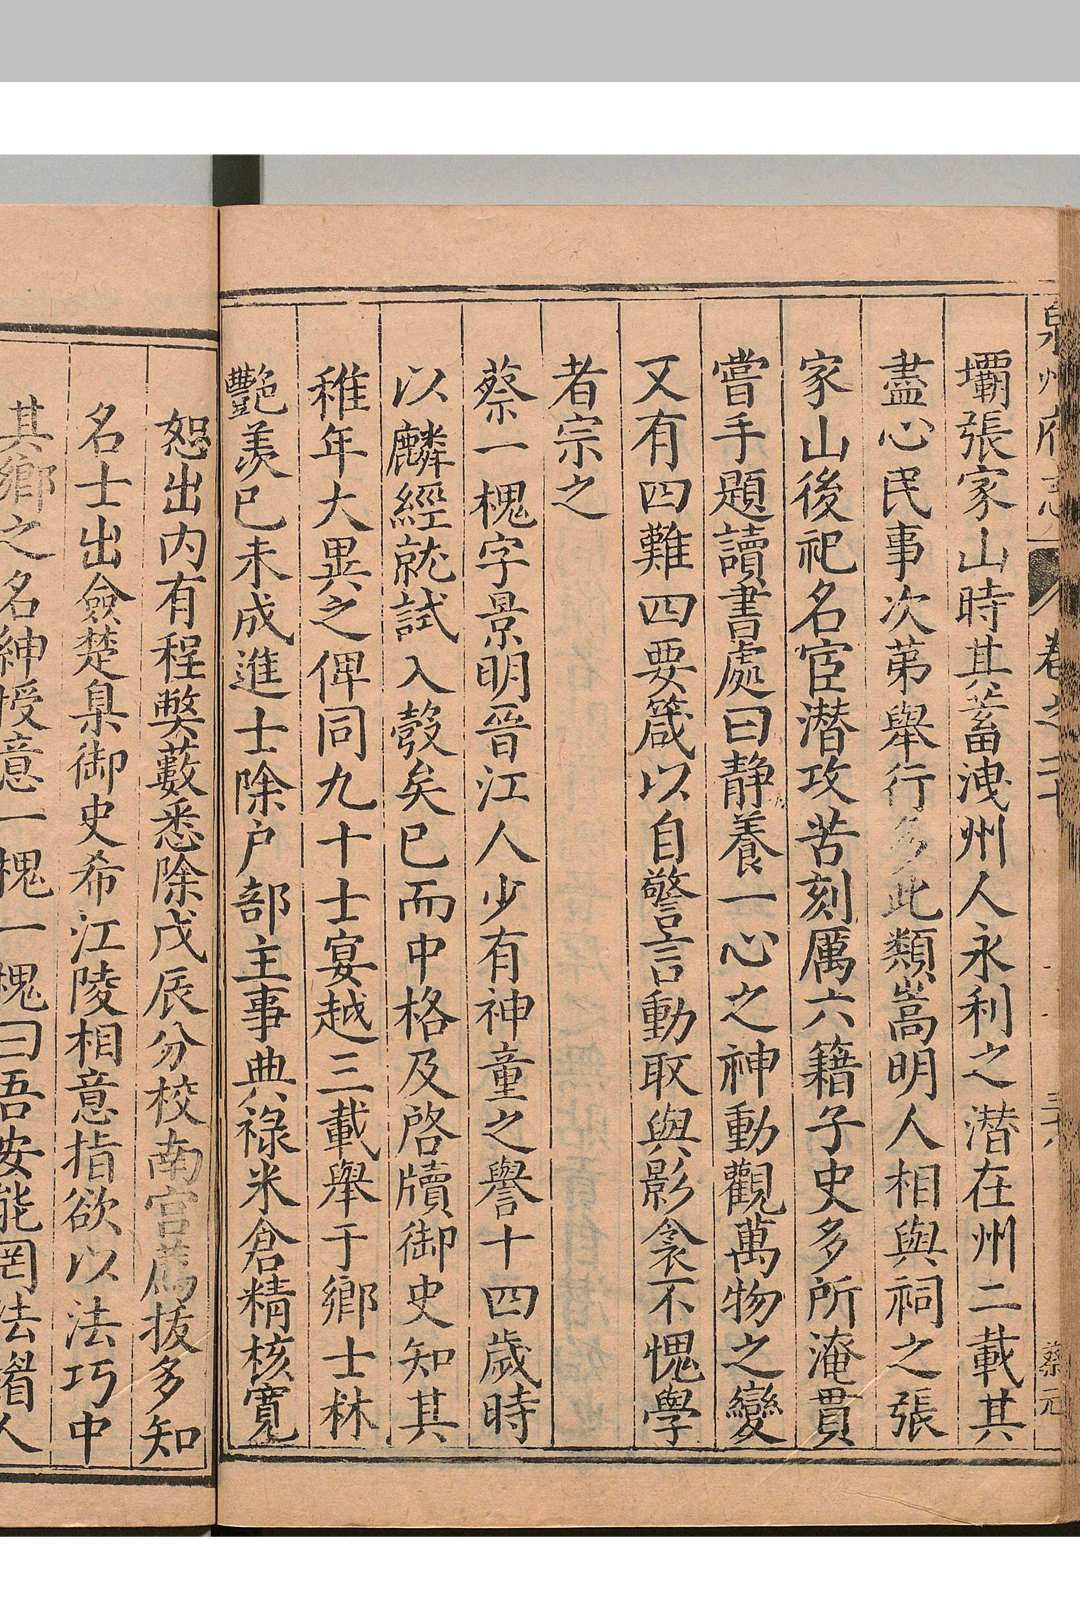 泉州府志 卷之二十 三十六 蔡元
壩張家山時其蓄洩州人永利之潜在州二載其
盡心民事次第舉行多此類嵩明人相與祠之張
家山後祀名宦潜攻苦刻厲六籍子史多所淹貫
嘗手題讀書處曰静養一心之神動觀萬物之變
又有四難四要箴以自警言動取與影衾不愧學
者宗之
蔡一槐字景明晉江人少有神童之譽十四歲時
以麟經就試入彀矣已而中格及啓牘御史知其
稚年大異之俾同九十士宴越三載舉于鄉士林
艷羨已未成進士除户部主事典祿米倉精核寛
恕出内有程弊藪悉除戊辰分校南宫薦拔多知
名士出僉楚臬御史希江陵相意指欲以法巧中
其鄉之名紳授意一槐一槐曰吾安能罔法谮人